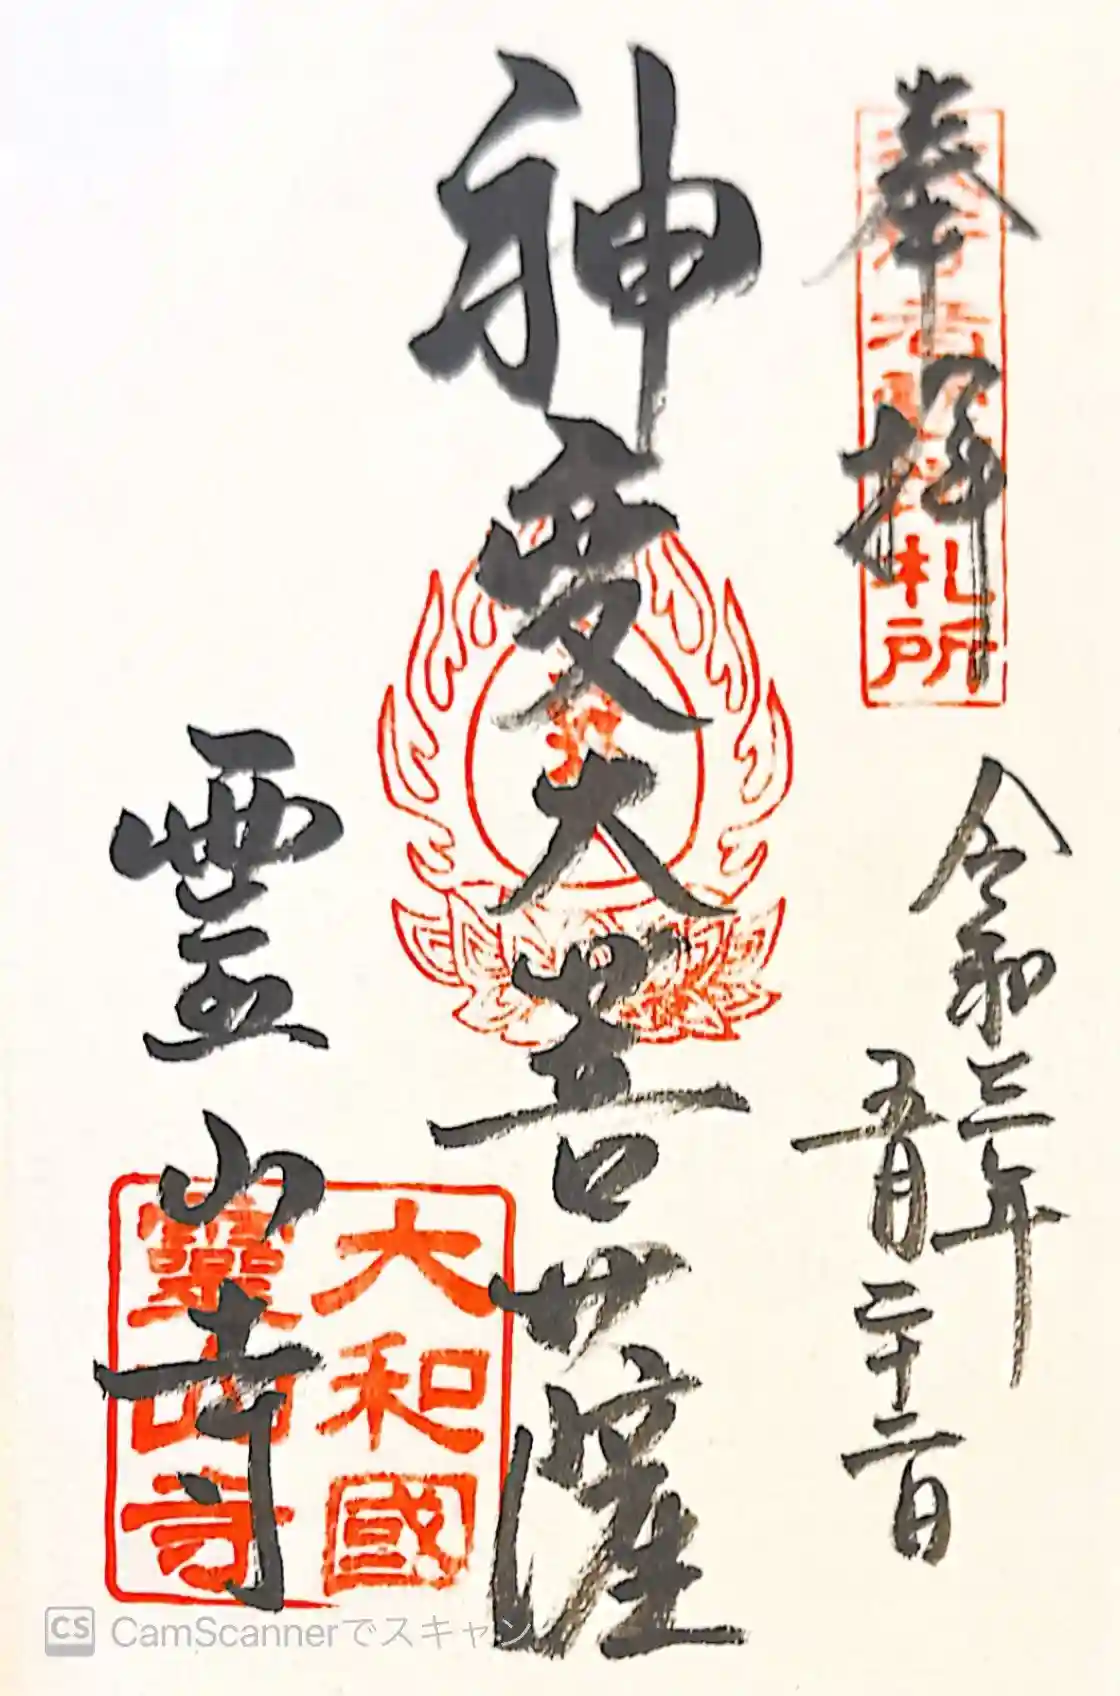 奉拝
役行者霊蹟札所
令和三年
五月二十二日
神変大菩薩
霊山寺
大和國
靈山寺
CS CamScannerでスキャン